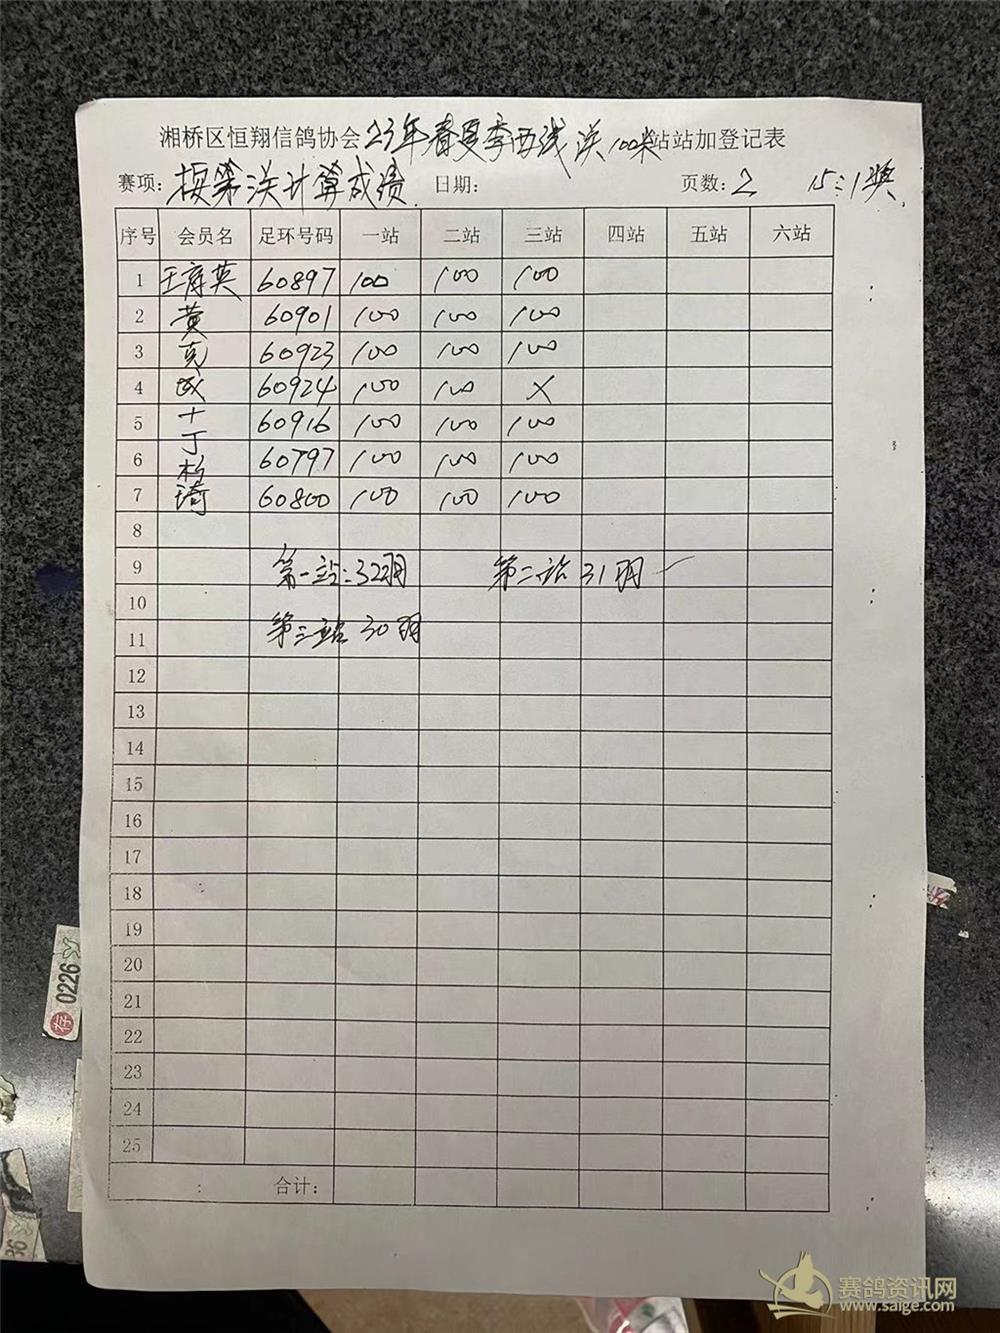 湘桥区恒翔信鸽协会23年春夏季西线关100米站站加登记表
赛项：按第关计算成绩. 日期： 页数：2 15:1奖.
序号 会员名 足环号码 一站 二站 三站 四站 五站 六站
1 英 60897 100 100 100
2 黄 60901 100 100 100
3 克 60923 100 100 100
4 成 60924 100 100 ×
5 十 60916 100 100 100
6 丁 60797 100 100 100
7 琦 60800 100 100 100
8
9 第一站：32羽 第二站 31羽
10
11 第三站 30羽
12
13
14
15
16
17
18
19
20
21
22
23
24
25
合计：
存 0226
赛鸽资讯网
www.saige.com